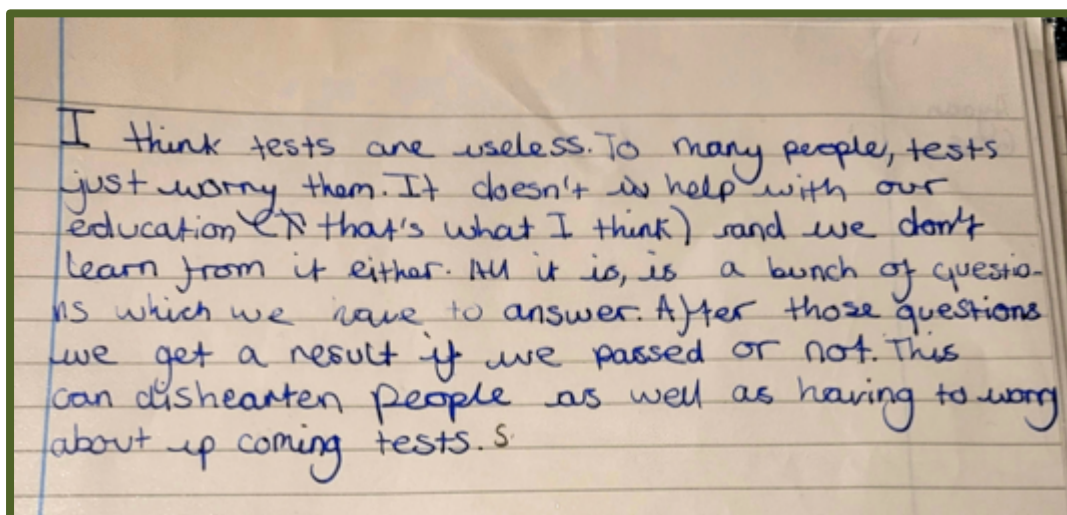 I think tests are useless. To many people, tests
just worry them. It doesn't help with our
education (that's what I think) and we don't
learn from it either. All it is, is a bunch of questio-
ns which we have to answer. After those questions
we get a result if we passed or not. This
can dishearten people as well as having to worry
about up coming tests. S